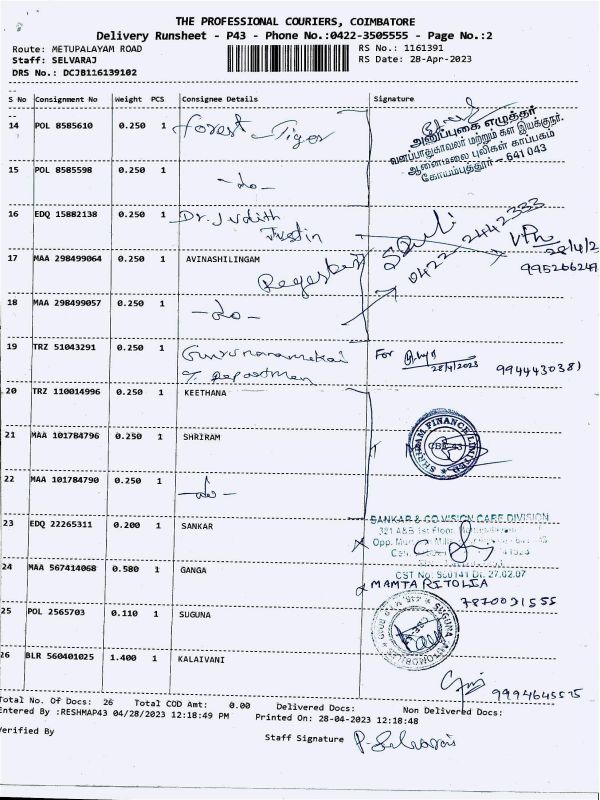 THE PROFESSIONAL COURIERS, COIMBATORE
Delivery Runsheet - P43 - Phone No.:0422-3505555 - Page No.:2
Route: METUPALAYAM ROAD RS No.: 1161391
Staff: SELVARAJ RS Date: 28-Apr-2023
DRS No.: DCJB116139102
S No Consignment No Weight PCS Consignee Details Signature
14 POL 8585610 0.250 1 Forest Tiger
அனுப்புகை எழுத்தர்
வனப்பாதுகாவலர் மற்றும் கள இயக்குநர்.
ஆனைமலை புலிகள் காப்பகம்
கோயம்புத்தூர் - 641 043
15 POL 8585598 0.250 1 -do-
16 EDQ 15882138 0.250 1 Dr. Judith
Justin
0422-2442333
28/4/2
17 MAA 298499064 0.250 1 AVINASHILINGAM
18 MAA 298499057 0.250 1 -do-
19 TRZ 51043291 0.250 1 For
28/4/2023 9944430381
20 TRZ 110014996 0.250 1 KEETHANA
21 MAA 101784796 0.250 1 SHRIRAM
SHRIRAM FINANCE LIMITED
CBE-43
22 MAA 101784790 0.250 1 -do-
23 EDQ 22265311 0.200 1 SANKAR
SANKAR & CO VISION CARE DIVISION
321 A&B 1st Floor,
Opp.
CST No. Dt. 27.02.07
24 MAA 567414068 0.580 1 GANGA
MAMTA RITOLIA
7870091555
25 POL 2565703 0.110 1 SUGUNA
SUGUNA AUTOMOBILES
26 BLR 560401025 1.400 1 KALAIVANI
Total No. Of Docs: 26 Total COD Amt: 0.00 Delivered Docs: Non Delivered Docs:
Entered By :RESHMAP43 04/28/2023 12:18:49 PM Printed On: 28-04-2023 12:18:48
Verified By
Staff Signature P. Selvaraj